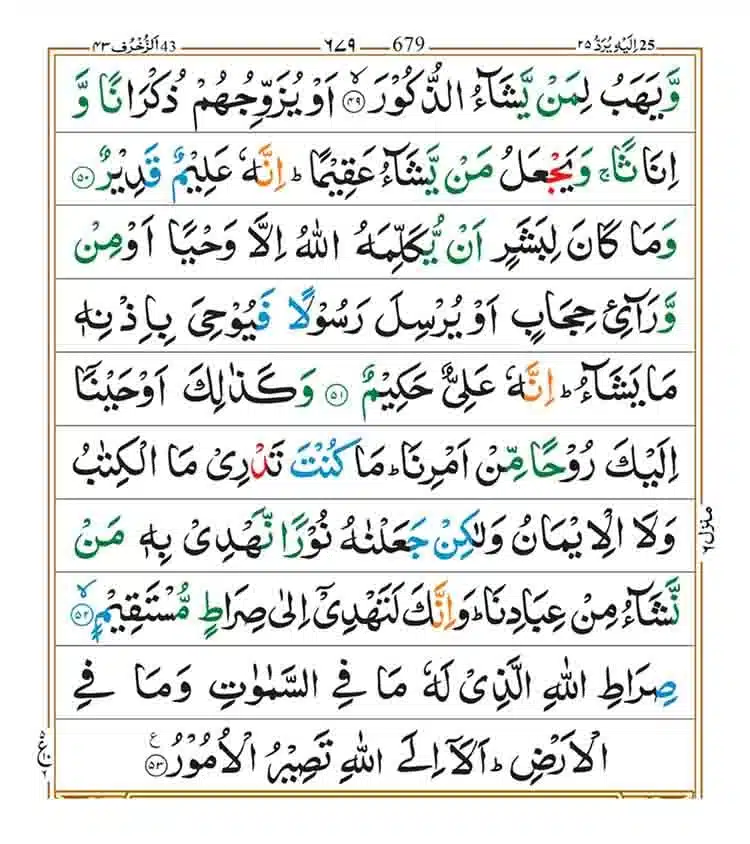 ٢٥ اِلَيْهِ يُرَدُّ 25 679 ٦٧٩ 43 اَلزُّخْرُف ٤٣
وَّيَهَبُ لِمَنْ يَّشَآءُ الذُّكُوْرَ ۙ‏﴿۴۹﴾ اَوْ يُزَوِّجُهُمْ ذُكْرَانًا وَّ
اِنَاثًا‌ ۚ وَيَجْعَلُ مَنْ يَّشَآءُ عَقِيْمًا‌ ؕ اِنَّهٗ عَلِيْمٌ قَدِيْرٌ ‏﴿۵۰﴾
وَمَا كَانَ لِبَشَرٍ اَنْ يُّكَلِّمَهُ اللّٰهُ اِلَّا وَحْيًا اَوْ مِنْ
وَّرَآئِ حِجَابٍ اَوْ يُرْسِلَ رَسُوْلًا فَيُوْحِىَ بِاِذْنِهٖ
مَا يَشَآءُ‌ ؕ اِنَّهٗ عَلِىٌّ حَكِيْمٌ ‏﴿۵۱﴾ وَكَذٰلِكَ اَوْحَيْنَاۤ
اِلَيْكَ رُوْحًا مِّنْ اَمْرِنَا‌ ؕ مَا كُنْتَ تَدْرِىْ مَا الْكِتٰبُ
وَلَا الْاِيْمَانُ وَلٰـكِنْ جَعَلْنٰهُ نُوْرًا نَّهْدِىْ بِهٖ مَنْ
نَّشَآءُ مِنْ عِبَادِنَا‌ ؕ وَاِنَّكَ لَتَهْدِىْۤ اِلٰى صِرَاطٍ مُّسْتَقِيْمٍۙ‏﴿۵۲﴾
صِرَاطِ اللّٰهِ الَّذِىْ لَهٗ مَا فِى السَّمٰوٰتِ وَمَا فِى
الْاَرْضِ‌ؕ اَلَاۤ اِلَى اللّٰهِ تَصِيْرُ الْاُمُوْرُ ‏﴿۵۳﴾
منزل ٦